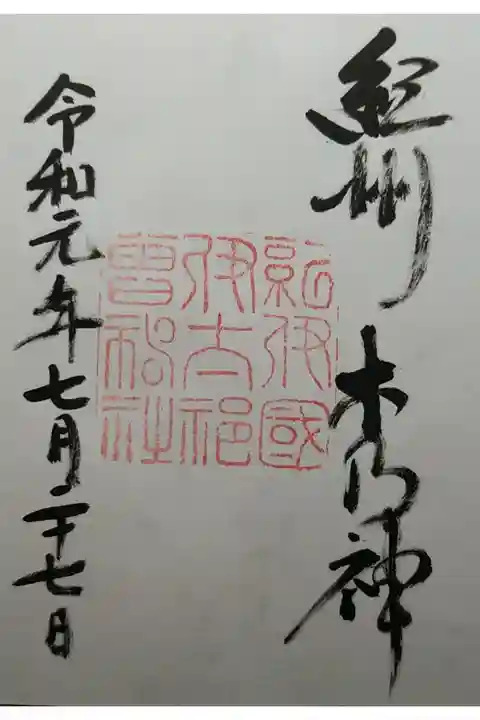 紀州 木の神
紀伊國
伊太祁
曾神社
令和元年七月二十七日